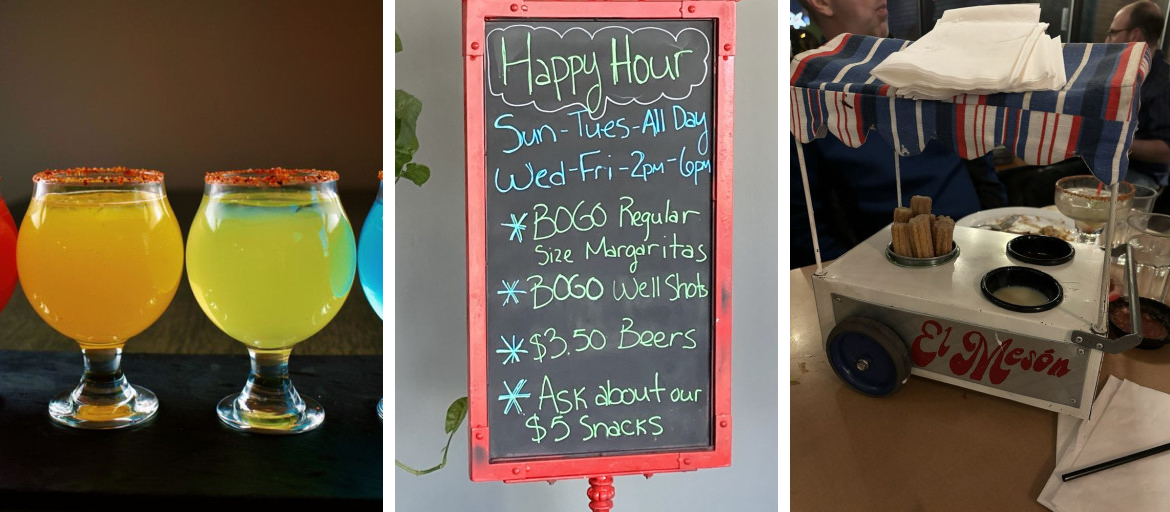 Happy Hour
Sun-Tues-All Day
Wed-Fri-2pm-6pm
* BOGO Regular
Size Margaritas
* BOGO Well Shots
* $3.50 Beers
* Ask about our
$5 Snacks
El Mesón